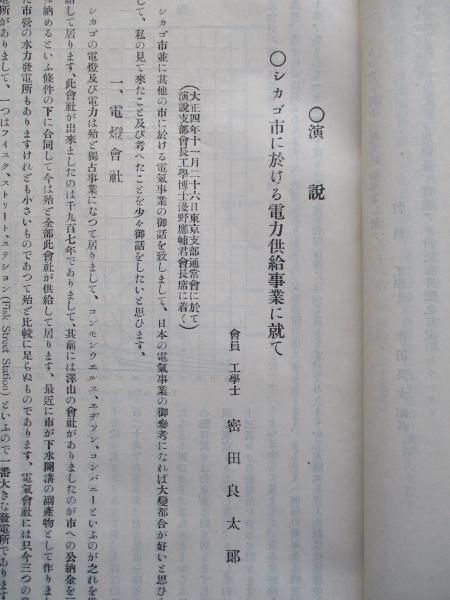 ○演説
○シカゴ市に於ける電力供給事業に就て
會員 工學士 密田良太郎
（大正四年十一月二十六日東京支部通常會に於て
演説支部會長工學博士淺野應輔君會長席に着く）
シカゴ市並に其他の市に於ける電氣事業の御話を致しまして、日本の電氣事業の御參考になれば大變都合が好いと思ひ
して、私の見て來たこと及び考へたことを少々御話をしたいと思ひます。
一、電燈會社
シカゴの電燈及び電力は殆ど獨占事業になつて居りまして、コンモンウエルス、エヂソン、コンパニーといふのが之れを供
給して居ります、此會社が出來ましたのは千九百七年でありまして、其前には澤山の會社がありましたのが市への公納金を
納めるといふ條件の下に合同して今は殆ど全部此會社が供給して居ります、最近に市が下水開溝の副產物として作りま
た市營の水力發電所もありますけれども小さいものであつて殆ど比較に足らぬものであります、電氣會社には只今三つの發
電所がありまして、一つはフイスク、ストリート、ステシヨン(Fisk Street Station)といふので一番大きな發電所であります